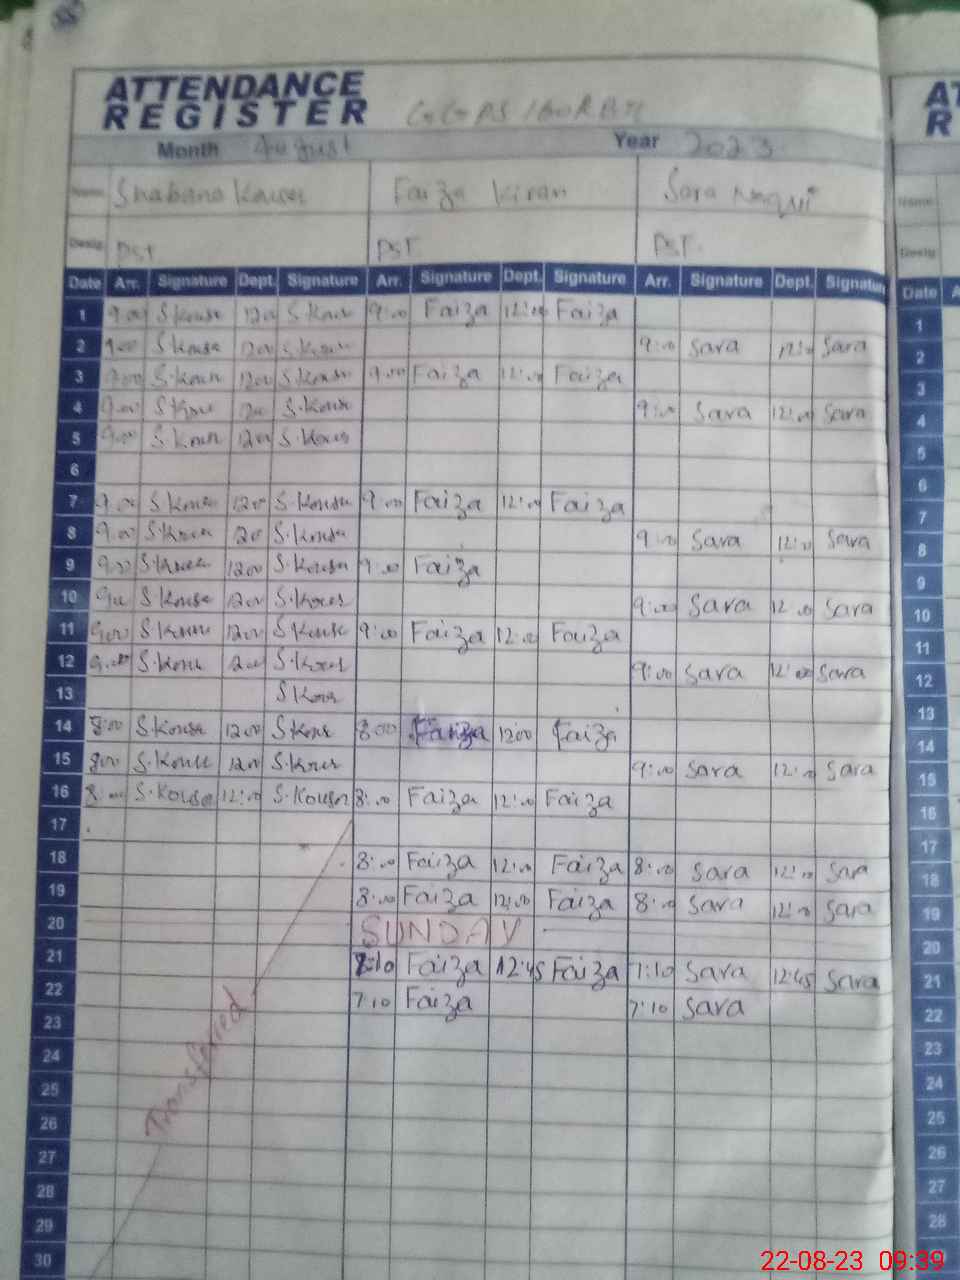 ATTENDANCE
REGISTER
Month August Year 2023
Name Shabana Kauser Faiza Kiran Sara Naqvi
Desig. PST PST PST.
Date Arr. Signature Dept. Signature Arr. Signature Dept. Signature Arr. Signature Dept. Signature
1 9:00 S.Kouse 1200 S.Kouse 9:00 Faiza 12:00 Faiza
2 9:00 S.Kouse 1200 S.Kouse 9:00 Sara 12:00 Sara
3 9:00 S.Kouse 1200 S.Kouse 9:00 Faiza 12:00 Faiza
4 9:00 S.Kouse S.Kouse 9:00 Sara 12:00 Sara
5 9:00 S.Kouse 1200 S.Kouse
6
7 9:00 S.Kouse 1200 S.Kouse 9:00 Faiza 12:00 Faiza
8 9:00 S.Kouse S.Kouse 9:00 Sara 12:00 Sara
9 9:00 S.Kouse 1200 S.Kousa 9:00 Faiza
10 S.Kouse 1200 S.Kouser 9:00 Sara 12:00 Sara
11 9:00 S.Kouse 1200 S.Kouse 9:00 Faiza 12:00 Faiza
12 9:00 S.Kouse S.Kouser 9:00 Sara 12:00 Sara
13 S.Kouse
14 8:00 S.Kousa 1200 S.Kouse 8:00 Faiza 1200 Faiza
15 800 S.Kouse 1200 S.Kouser 9:00 Sara 12:00 Sara
16 8:00 S.Kousa 12:00 S.Kousa 8:00 Faiza 12:00 Faiza
17
18 8:00 Faiza 12:00 Faiza 8:00 Sara 12:00 Sara
19 8:00 Faiza 12:00 Faiza 8:00 Sara 12:00 Sara
20 SUNDAY
21 Faiza 12:45 Faiza 7:10 Sara 12:45 Sara
22 7:10 Faiza 7:10 Sara
23
24
25
26
27
28
29
30
Transferred
AT
R
Name
Desig
Date A
1
2
3
4
5
6
7
8
9
10
11
12
13
14
15
16
17
18
19
20
21
22
23
24
25
26
27
28
22-08-23 09:39